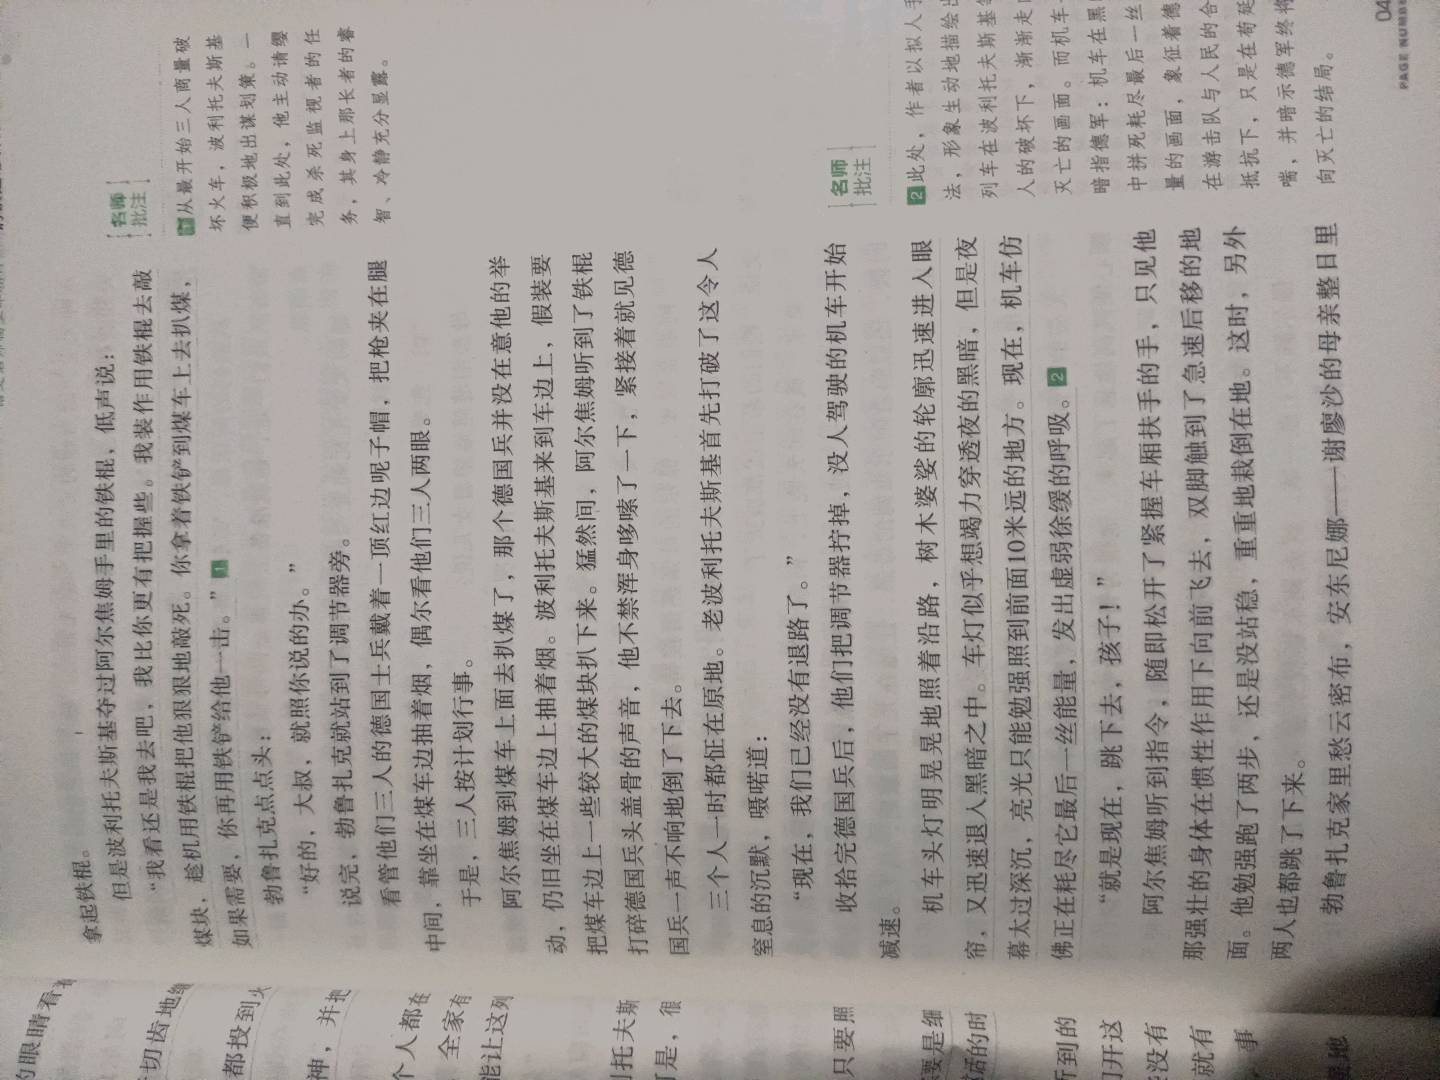 拿起铁棍。
但是波利托夫斯基夺过阿尔焦姆手里的铁棍，低声说：
“我看还是我去吧，我比你更有把握些。我装作用铁棍去敲
煤块，趁机用铁棍把他狠狠地敲死。你拿着铁铲到煤车上去扒煤，
如果需要，你再用铁铲给他一击。”1
勃鲁扎克点点头：
“好的，大叔，就照你说的办。”
说完，勃鲁扎克就站到了调节器旁。
看管他们三人的德国士兵戴着一顶红边呢子帽，把枪夹在腿
中间，靠坐在煤车边抽着烟，偶尔看他们三人两眼。
于是，三人按计划行事。
阿尔焦姆到煤车上面去扒煤了，那个德国兵并没在意他的举
动，仍旧坐在煤车边上抽着烟。波利托夫斯基来到车边上，假装要
把煤车边上一些较大的煤块扒下来。猛然间，阿尔焦姆听到了铁棍
打碎德国兵头盖骨的声音，他不禁浑身哆嗦了一下，紧接着就见德
国兵一声不响地倒了下去。
三个人一时都怔在原地。老波利托夫斯基首先打破了这令人
窒息的沉默，嗫喏道：
“现在，我们已经没有退路了。”
收拾完德国兵后，他们把调节器拧掉，没人驾驶的机车开始
减速。
机车头灯明晃晃地照着沿路，树木婆娑的轮廓迅速进入眼
帘，又迅速退入黑暗之中。车灯似乎想竭力穿透夜的黑暗，但是夜
幕太过深沉，亮光只能勉强照到前面10米远的地方。现在，机车仿
佛正在耗尽它最后一丝能量，发出虚弱徐缓的呼吸。2
“就是现在，跳下去，孩子！”
阿尔焦姆听到指令，随即松开了紧握车厢扶手的手，只见他
那强壮的身体在惯性作用下向前飞去，双脚触到了急速后移的地
面。他勉强跑了两步，还是没站稳，重重地栽倒在地。这时，另外
两人也都跳了下来。
勃鲁扎克家里愁云密布，安东尼娜——谢廖沙的母亲整日里
名师
批注
1从最开始三人商量破
坏火车，波利托夫斯基
便积极地出谋划策。一
直到此处，他主动请缨
完成杀死监视者的任
务，其身上那长者的睿
智、冷静充分显露。
名师
批注
2此处，作者以拟人手
法，形象生动地描绘出
列车在波利托夫斯基等
人的破坏下，渐渐走向
灭亡的画面。而机车
暗指德军：机车在黑暗
中拼死耗尽最后一丝
量的画面，象征着德
在游击队与人民的合
抵抗下，只是在苟延
喘，并暗示德军终将
向灭亡的结局。
04
PAGE NUMBE
的眼睛看着
切齿地
都投到火
神，并把
个人都在
全家有
能让这列
托夫斯
是，很
只要照
要是细
话的时
听到的
开这
没有
就有
事
地